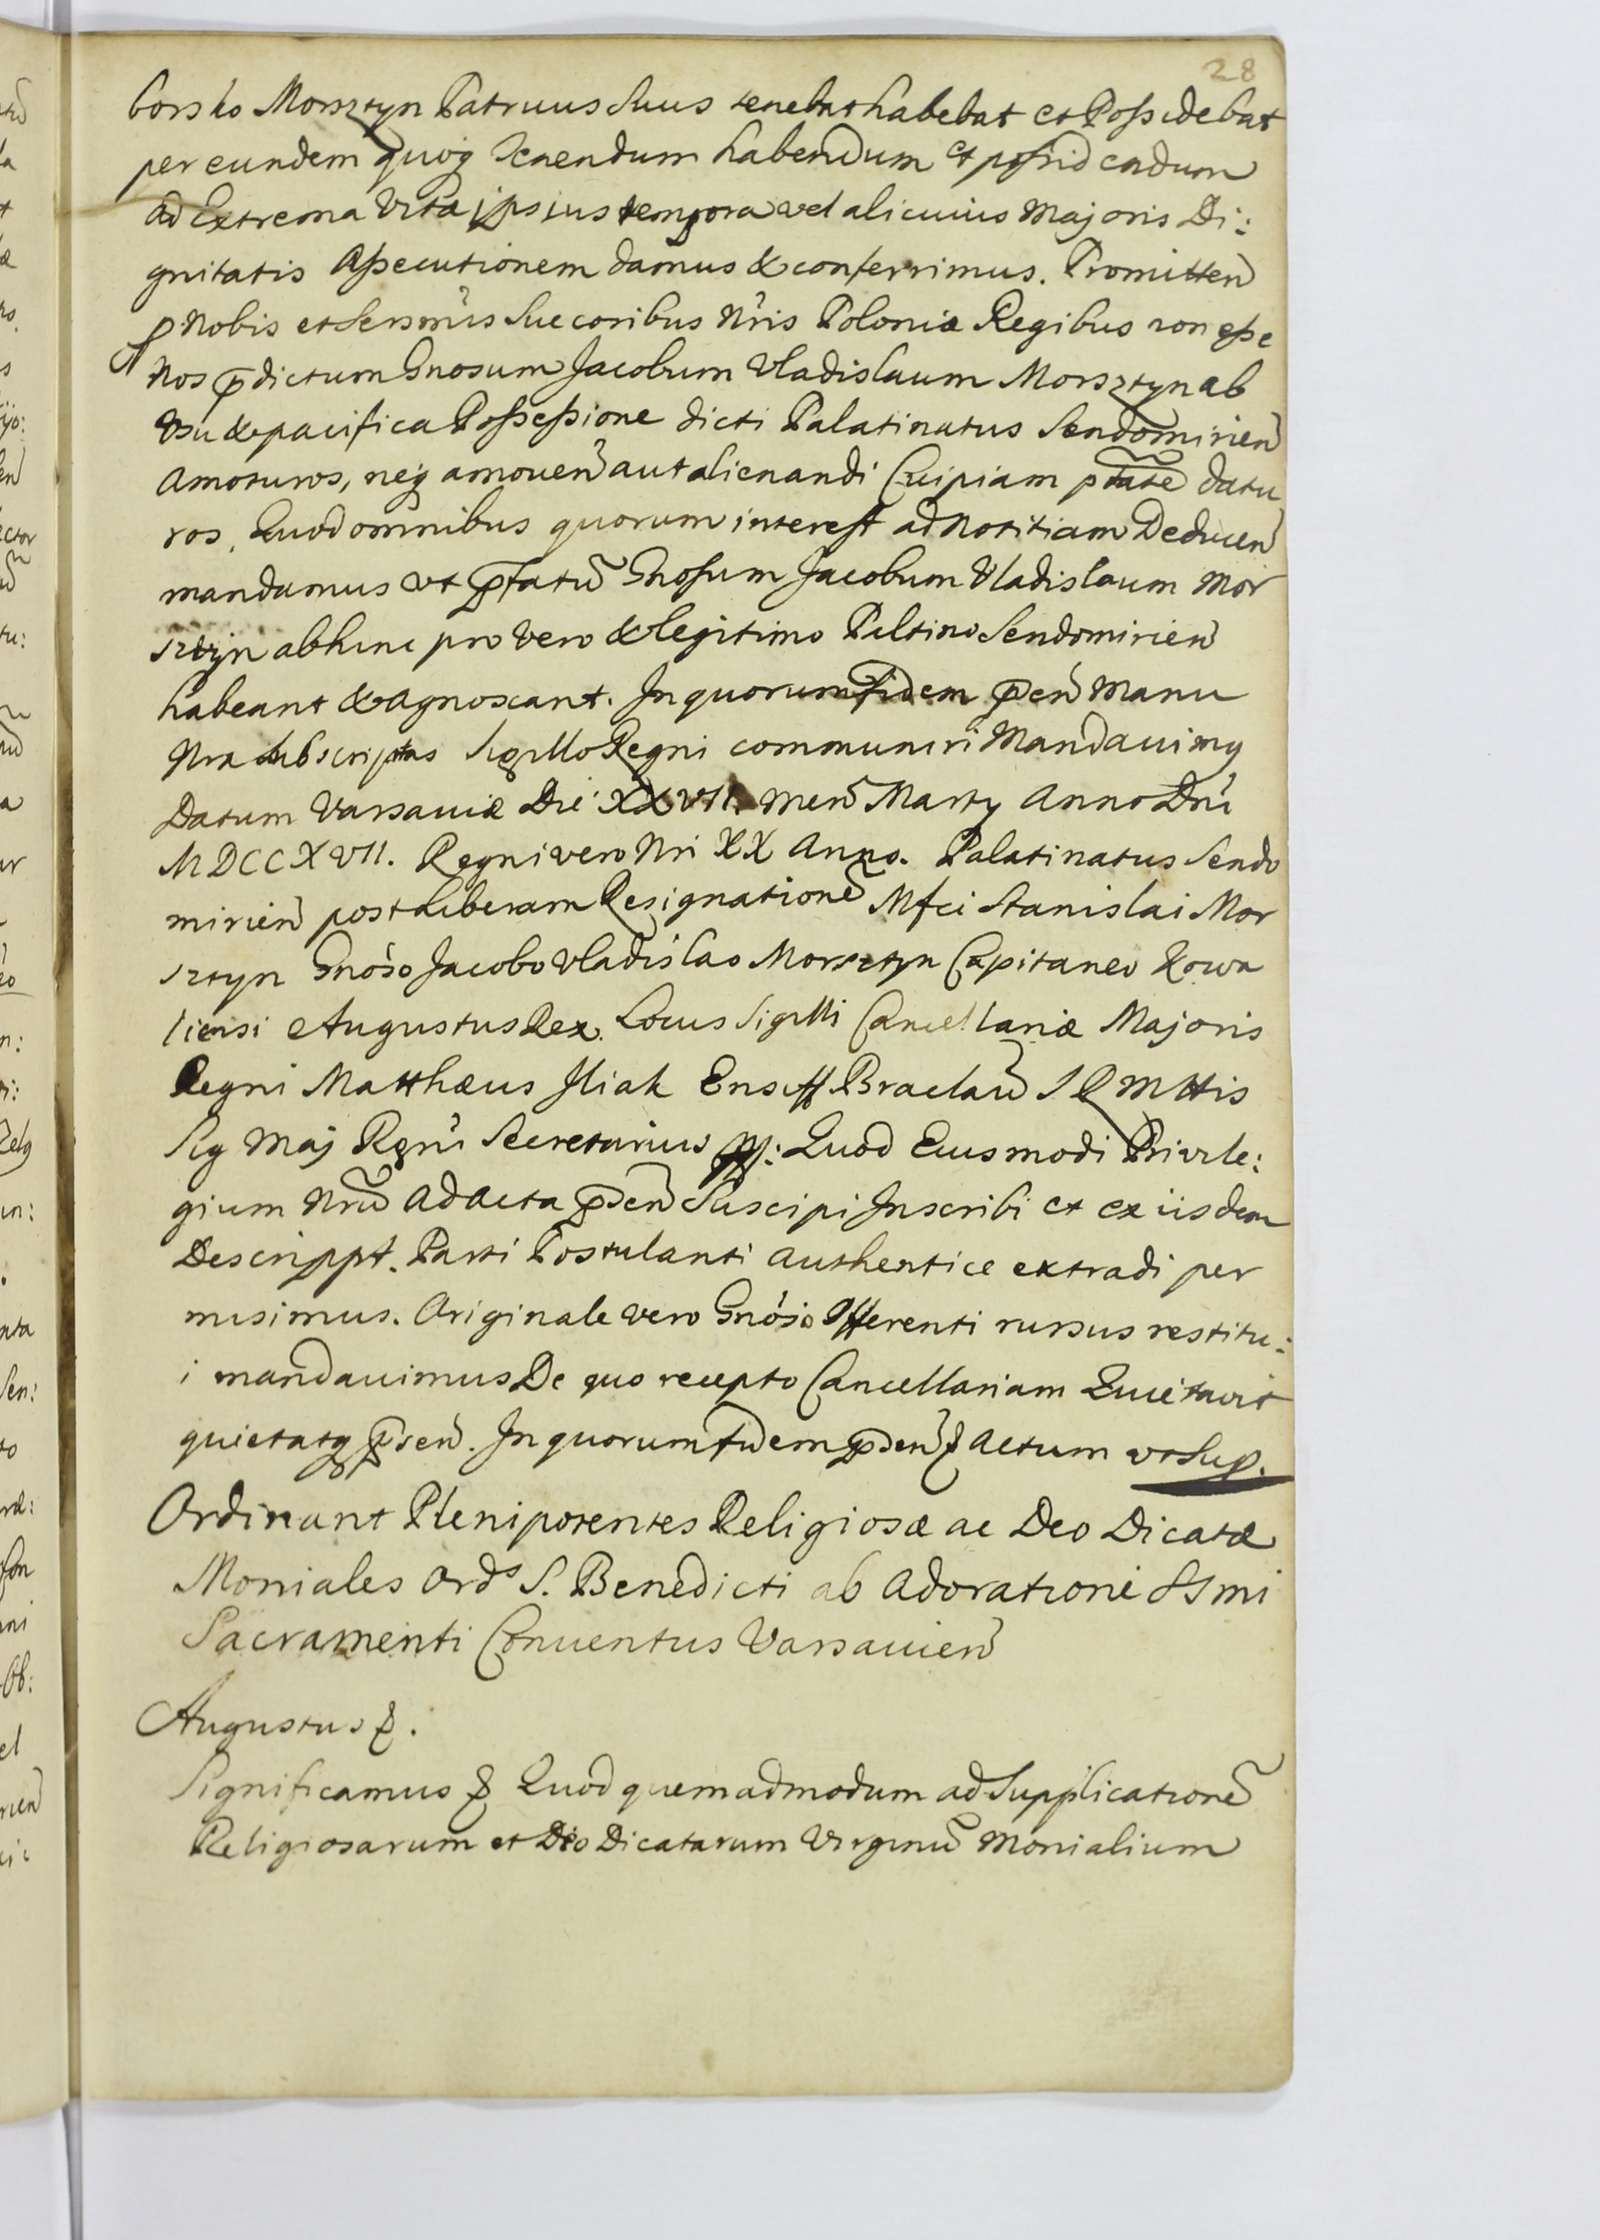 28
borsko Morsztyn Patruus Suus tenebat habebat et Possidebat
per eundem quoq tenendum habendum et possidendum
ad Extrema Vita ipsius tempora vel alicuius Majoris Di:
gnitatis Assecutionem damus & conferrimus. Promitten
p Nobis et Sersmis Succoribus Nris Poloniæ Regibus non esse
Nos prdictum Gnosum Jacobum Vladislaum Morsztyn ab
Vsu & pacifica Possessione dicti Palatinatus Sendomirien
amoturos, neq amouen aut alienandi Cuipiam ptate datu
ros, Quod omnibus quorum interest ad Notitiam Deducen
mandamus vt pfatu Gnosum Jacobum Vladislaum Mor
sztyn abhinc pro Vero & legitimo Paltino Sendomirien
habeant & agnoscant. In quorum fidem pen Manu
Nra subscriptas Sigillo Regni communiri Mandauimq
Datum Varsauiæ Die XXVII. Men Marty Anno Dni
MDCCXVII. Regni vero Nri XX Anno. Palatinatus Sendo
mirien post Liberam Resignatione Mfci Stanislai Mor
sztyn Gnoso Jacobo Vladislao Morsztyn Capitaneo Kowa
liensi Augustus Rex. Locus Sigilli Cancellariæ Majoris
Regni Matthæus Iliak Ensiff Braclau S R Mttis
Sig Maj Rgni Secretarius Quod Eiusmodi Privile:
gium Nru ad acta psen Suscipi Inscribi et ex iisdem
Descrippt. Parti Postulanti authentice extradi per
misimus. Originale vero Gnoso Offerenti rursus restitu:
i mandauimus De quo recepto Cancellariam Quietavit
quietatq psen. In quorum fidem psen & Actum vt Sup.
Ordinant Plenipotentes Religiosæ ac Deo Dicatæ
Moniales Ords S. Benedicti ab Adoratione SSmi
Sacramenti Conuentus Varsauien
Augustus &.
Significamus & Quod quemadmodum ad Supplicatione
Religiosarum et Deo Dicatarum Virginu Monialium